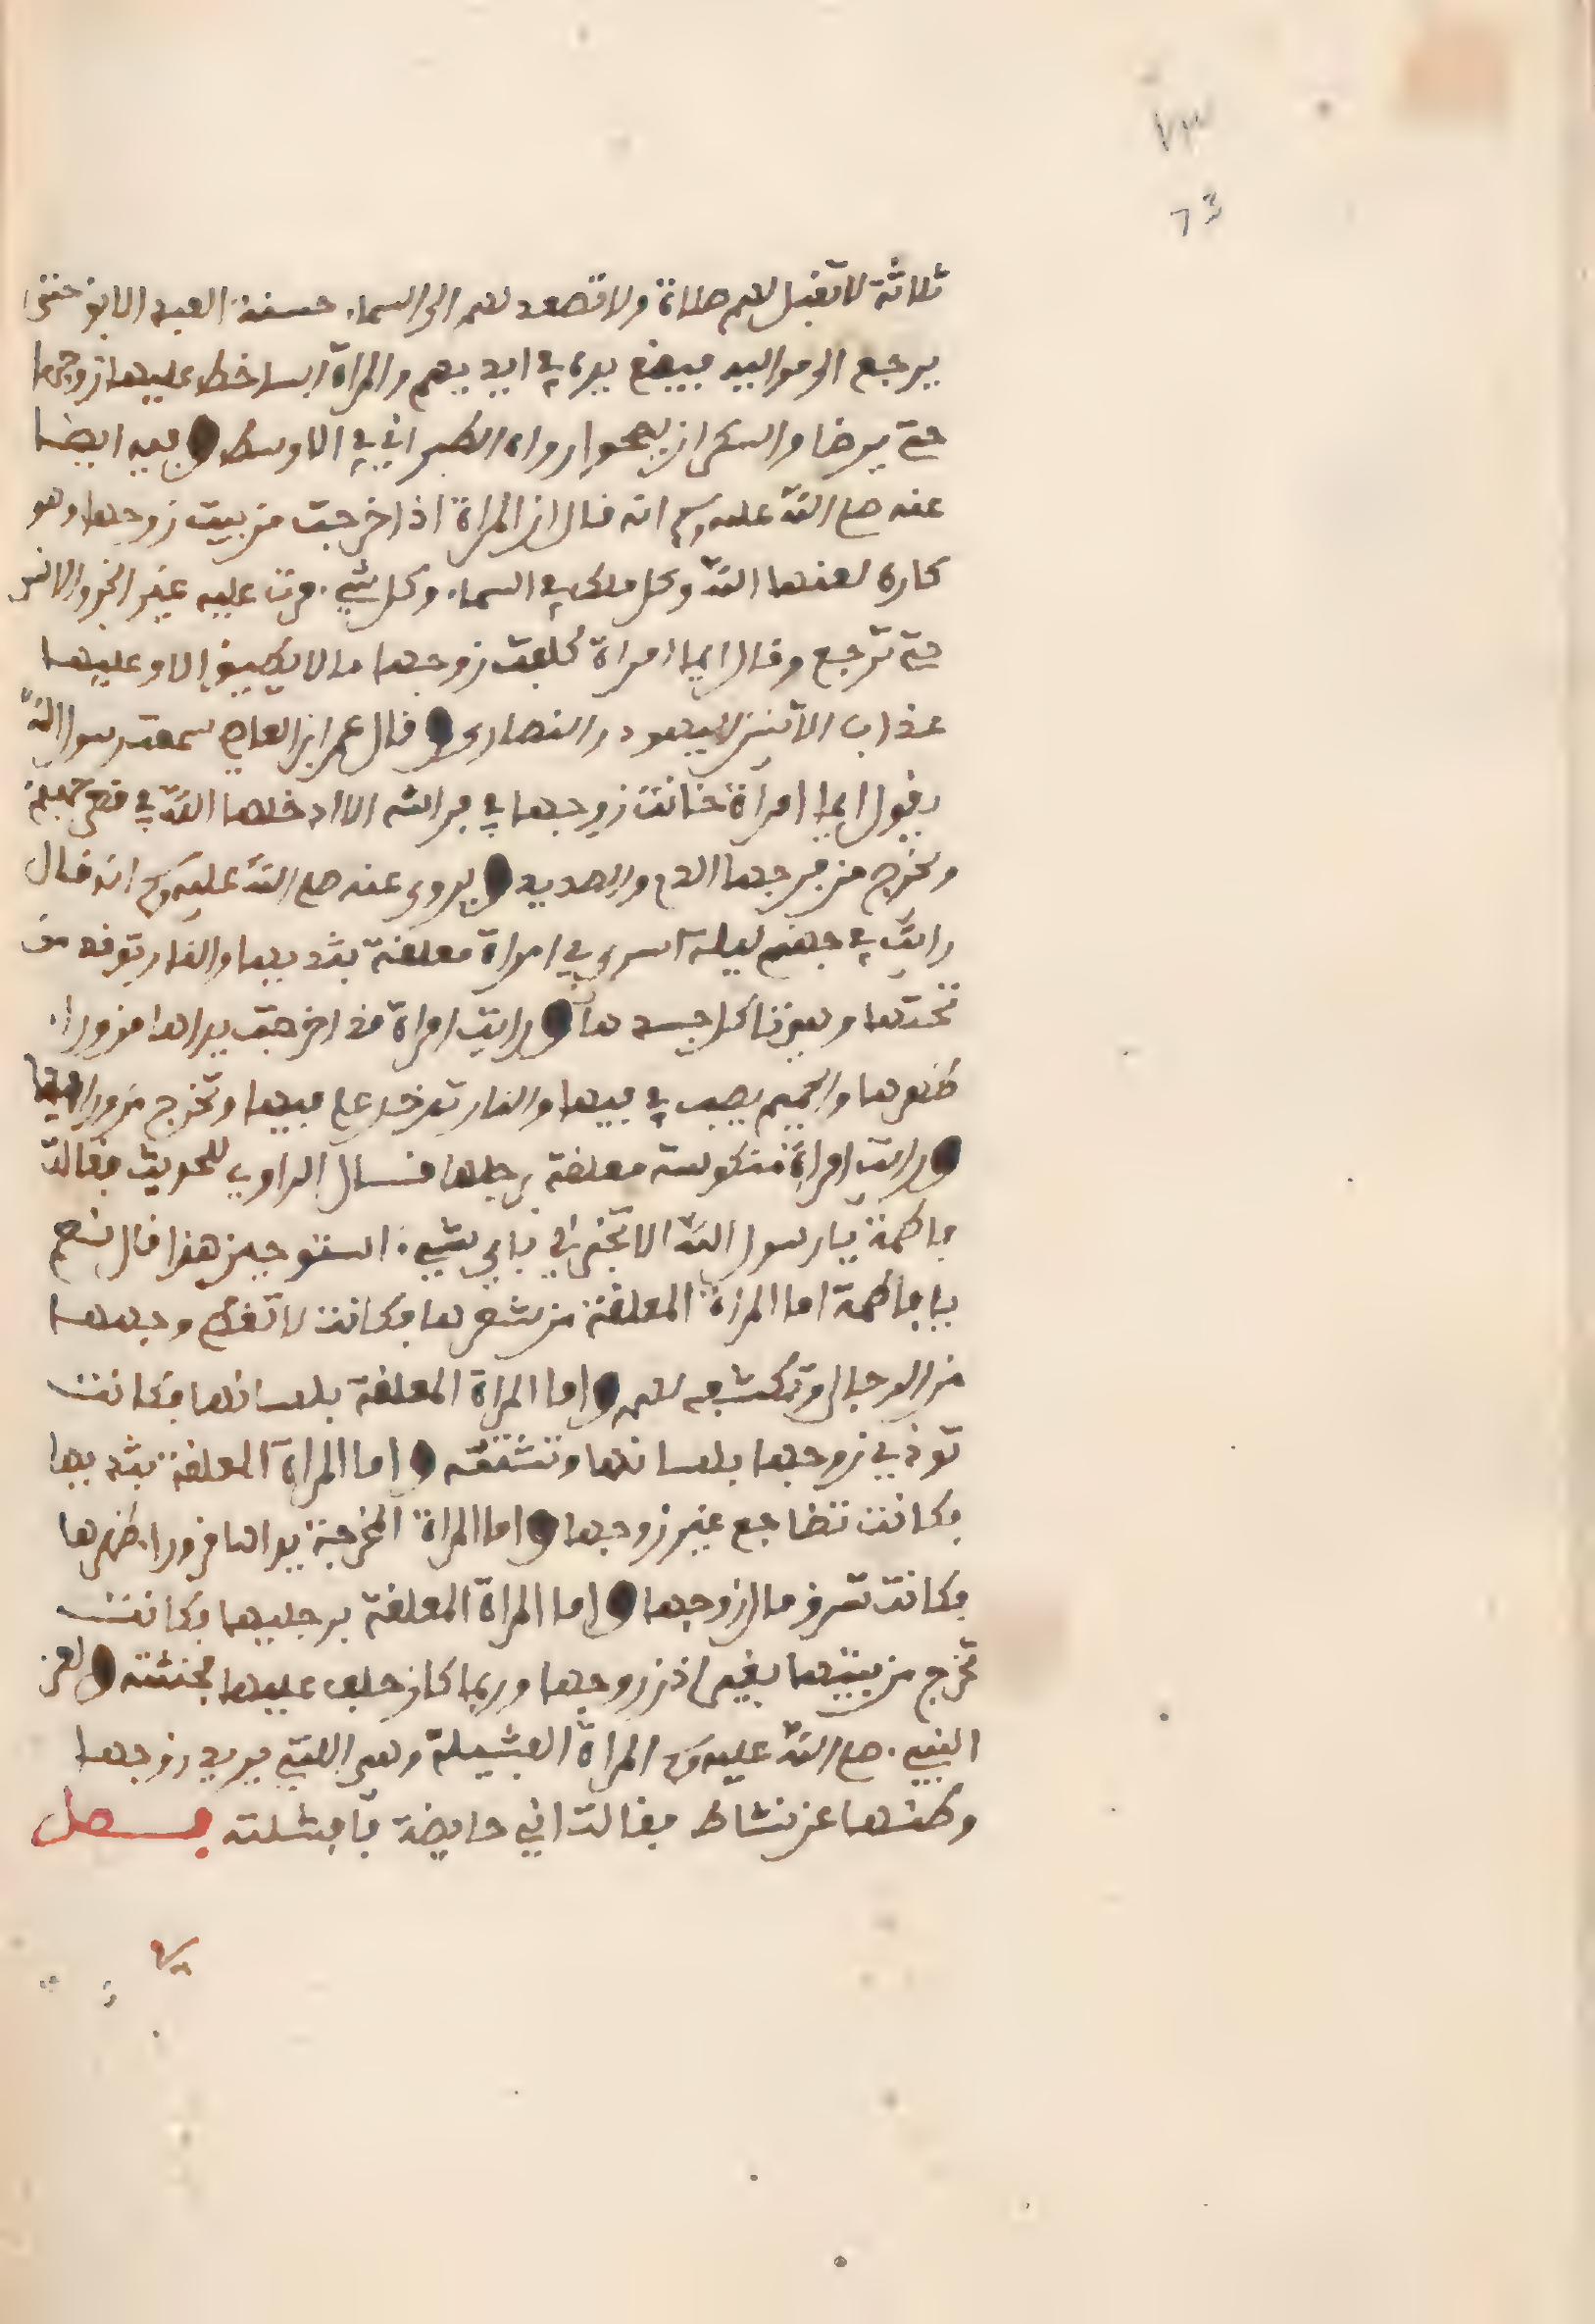 ٧٣
73
ثلاثة لا تقبل لهم صلاة ولا تصعد لهم الى السما. حسنة العبد الابق حتى
يرجع الى مواليه فيضع يده في ايديهم والمراة الساخط عليها زوجها
حتى يرضا والسكران يصحوا رواه الطبراني في الاوسط وفيه ايضا
عنه صلى الله عليه وسلم انه قال ان المراة اذا خرجت من بيت زوجها وهو
كاره لعنها الله وكل ملك في السما. وكل شيء مرت عليه غير الجن والانس
حتى ترجع وقال ايما امراة كلفت زوجها ما لا يطيق الا وعليها
عذاب الاثنين اليهود والنصارى وقال عمر ابن العاص سمعت رسول الله
يقول ايما امراة خانت زوجها في فراشه الا ادخلها الله في
ويخرج من فرجها الدم والصديد ويروى عنه صلى الله عليه وسلم انه قال
رايت في جهنم ليلة اسري بي امراة معلقة بثدييها والنار توقد من
تحتها جسدها ورايت امراة قد اخرجت يداها من ورا.
ظهرها والحميم يصب في فيها والنار تدخل على فيها وتخرج من ورايها
ورايت امراة منكوسة معلقة برجلها قال الراوي للحديث فقالت
فاطمة يا رسول الله الا تخبرني باي شيء استوجبن هذا قال نعم
يا فاطمة اما المراة المعلقة من شعرها فكانت لا تغطي وجهها
من الرجال وتكشفه لهم واما المراة المعلقة بلسانها فكانت
توذي زوجها بلسانها وتشتمه واما المراة المعلقة بثدييها
فكانت تضاجع غير زوجها واما المراة المخرجة يداها من ورا. ظهرها
فكانت تسرق مال زوجها واما المراة المعلقة برجليها فكانت
تخرج من بيتها بغير اذن زوجها وربما كان حلف عليها فحنثته ولعن
النبي صلى الله عليه وسلم المراة الفشيلة وهي التي يريد زوجها
وطئها عن نشاط فقالت اني حايضة فافشلته فصل